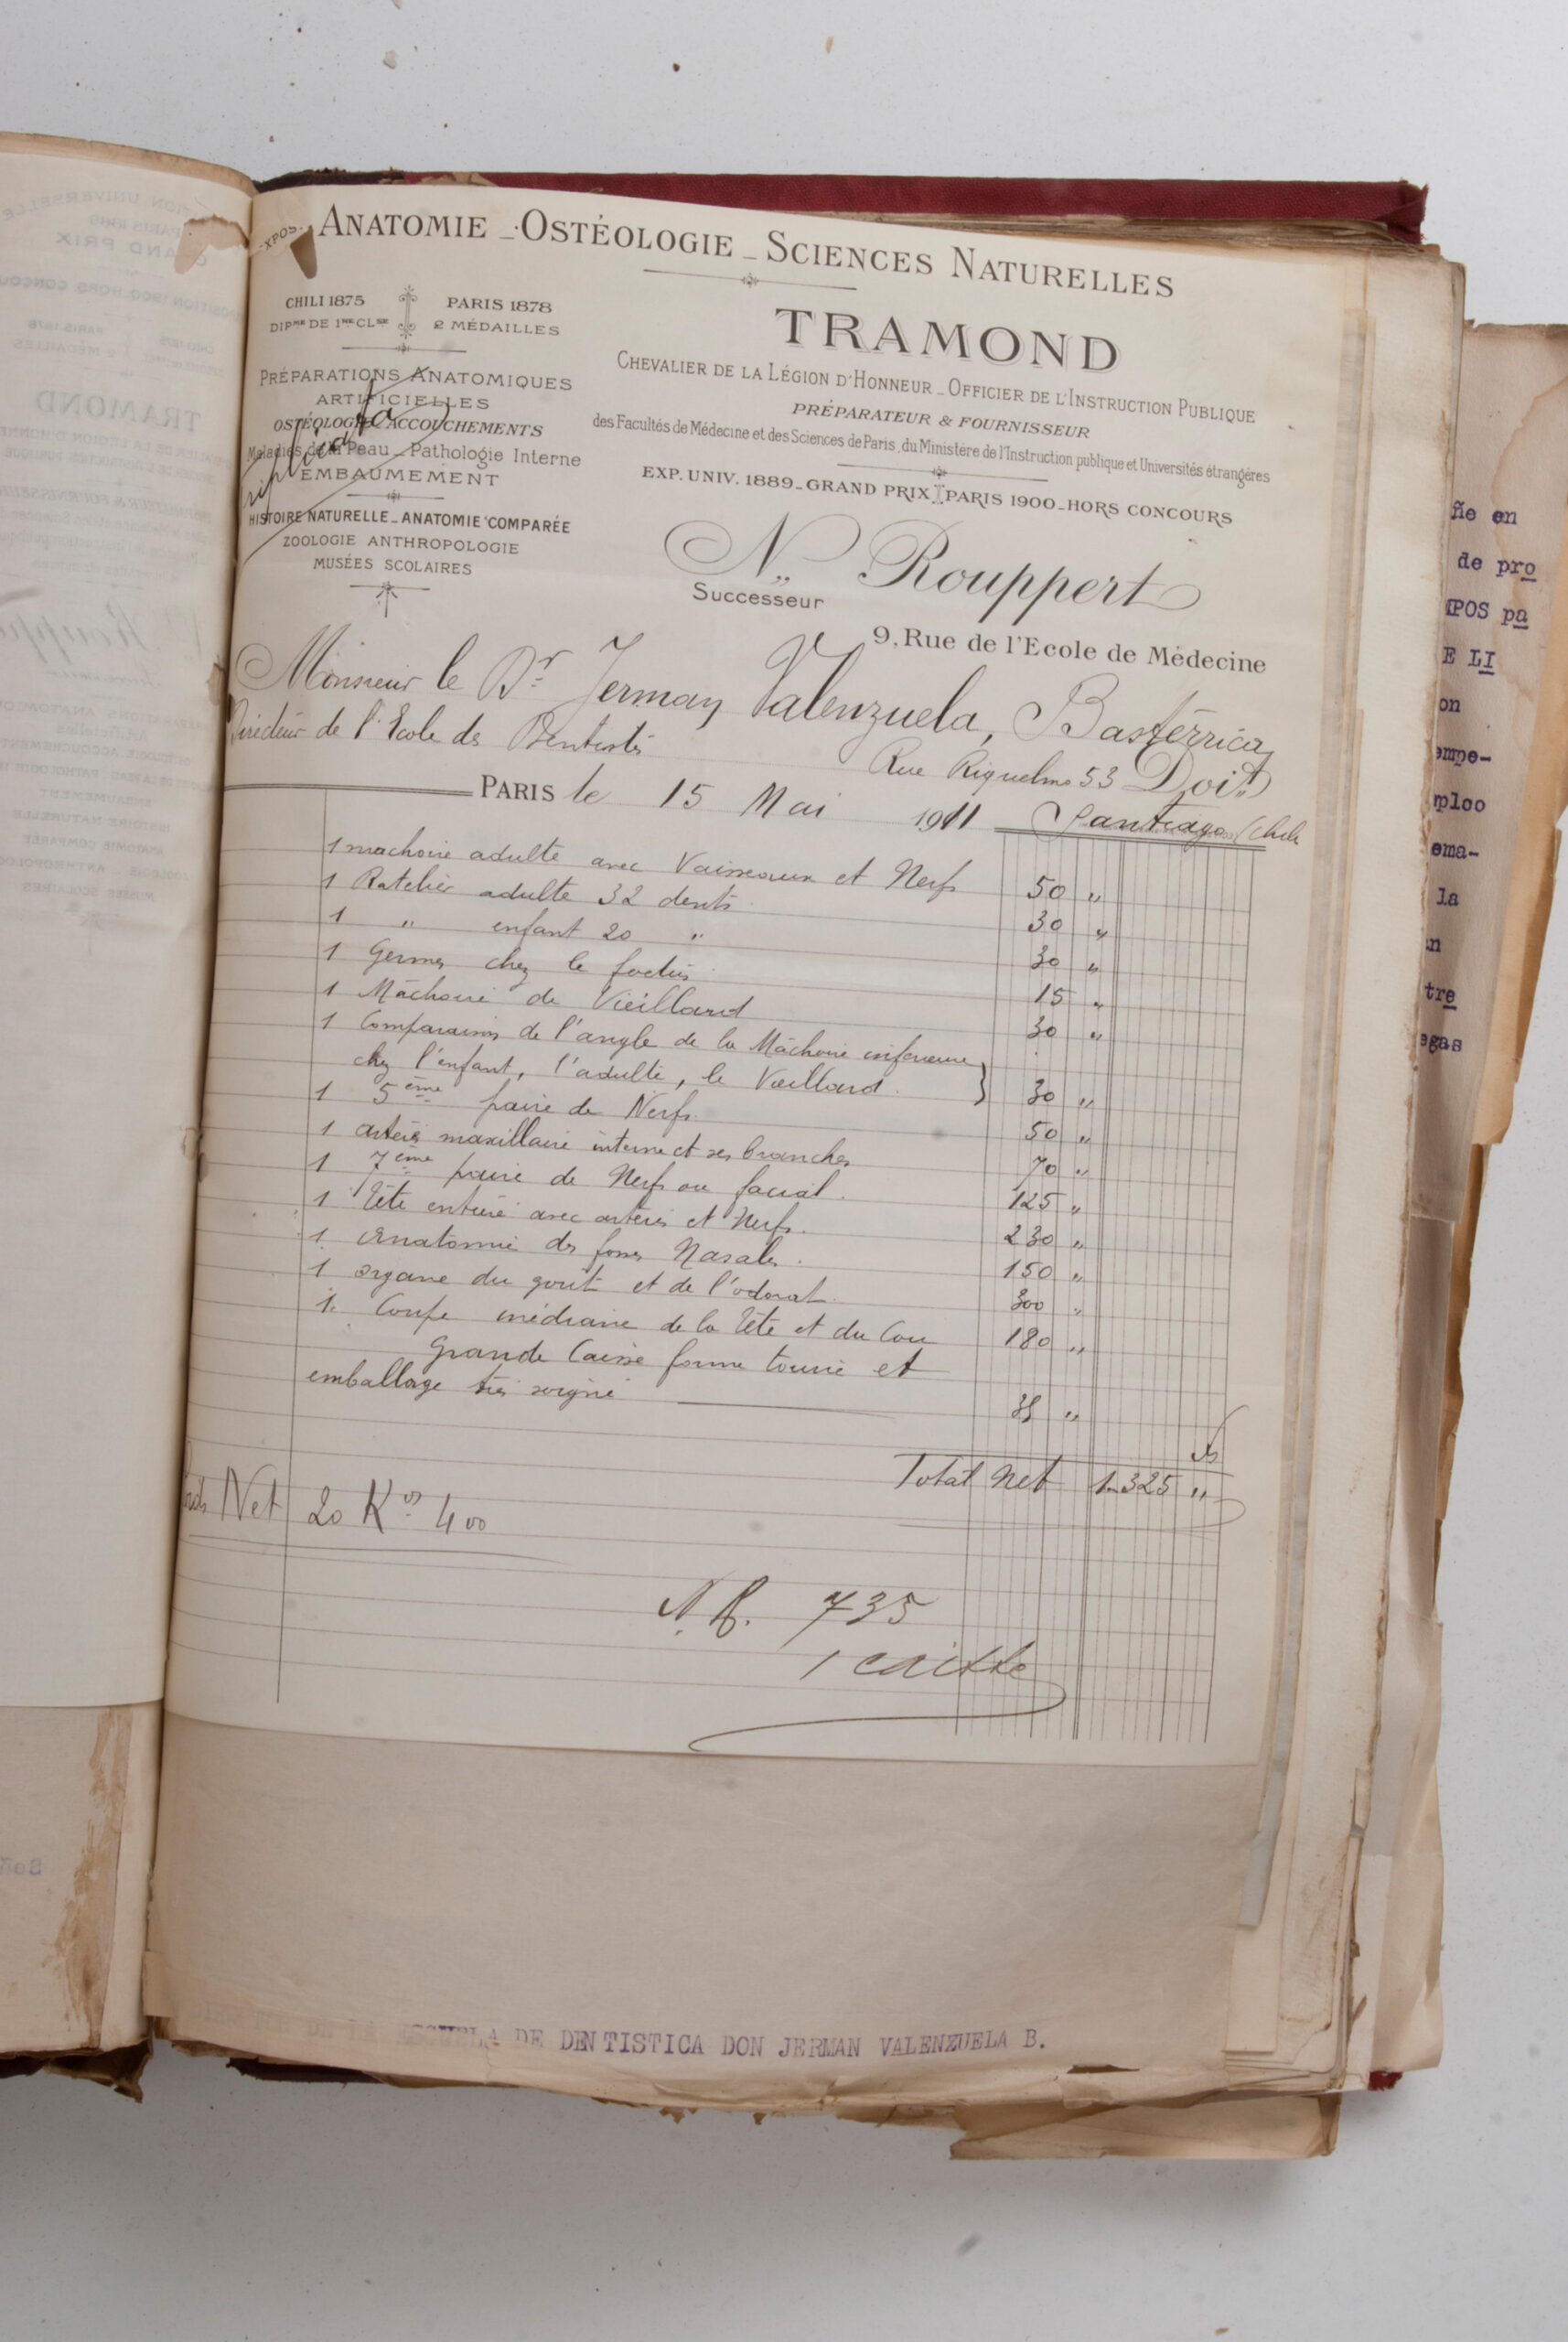 ANATOMIE - OSTÉOLOGIE - SCIENCES NATURELLES
XPOS.
CHILI 1875
DIPME DE 1RE CLSE
PARIS 1878
2 MÉDAILLES
PRÉPARATIONS ANATOMIQUES
ARTIFICIELLES
OSTÉOLOGIE ACCOUCHEMENTS
Maladies de la Peau - Pathologie Interne
EMBAUMEMENT
HISTOIRE NATURELLE - ANATOMIE COMPARÉE
ZOOLOGIE ANTHROPOLOGIE
MUSÉES SCOLAIRES
TRAMOND
CHEVALIER DE LA LÉGION D'HONNEUR - OFFICIER DE L'INSTRUCTION PUBLIQUE
PRÉPARATEUR & FOURNISSEUR
des Facultés de Médecine et des Sciences de Paris, du Ministère de l'Instruction publique et Universités étrangères
EXP. UNIV. 1889 - GRAND PRIX PARIS 1900 - HORS CONCOURS
N. Rouppert
Successeur
9, Rue de l'Ecole de Médecine
Monsieur le Dr Jerman Valenzuela, Basterrica
Directeur de l'Ecole des Dentistes
Rue Riquelme 53 Doit
PARIS le 15 Mai 1911 Santiago (Chili
1 machoire adulte avec Vaisseaux et Nerfs 50 "
1 Ratelier adulte 32 dents 30 "
1 " enfant 20 " 30 "
1 Germes chez le foetus 15 "
1 Mâchoire de Vieillard 30 "
1 Comparaison de l'angle de la Mâchoire inferieure
chez l'enfant, l'adulte, le Vieillard. 30 "
1 5ème paire de Nerfs 50 "
1 artère maxillaire interne et ses branches 70 "
1 7ème paire de Nerfs ou facial. 125 "
1 Tête entière avec artères et Nerfs. 230 "
1 Anatomie des fosses Nasales. 150 "
1 organe du goût et de l'odorat 300 "
1. Coupe médiane de la Tête et du Cou 180 "
Grande Caisse forme tourie et
emballage très soigné 35 "
Total Net 1.325 "
Net 20 Kos 400
N. R. 735
1 caisse
DE LA ESCUELA DE DENTISTICA DON JERMAN VALENZUELA B.
ñe en
de pro
MPOS pa
E LI
on
empe-
mpleo
ema-
la
tre
egas